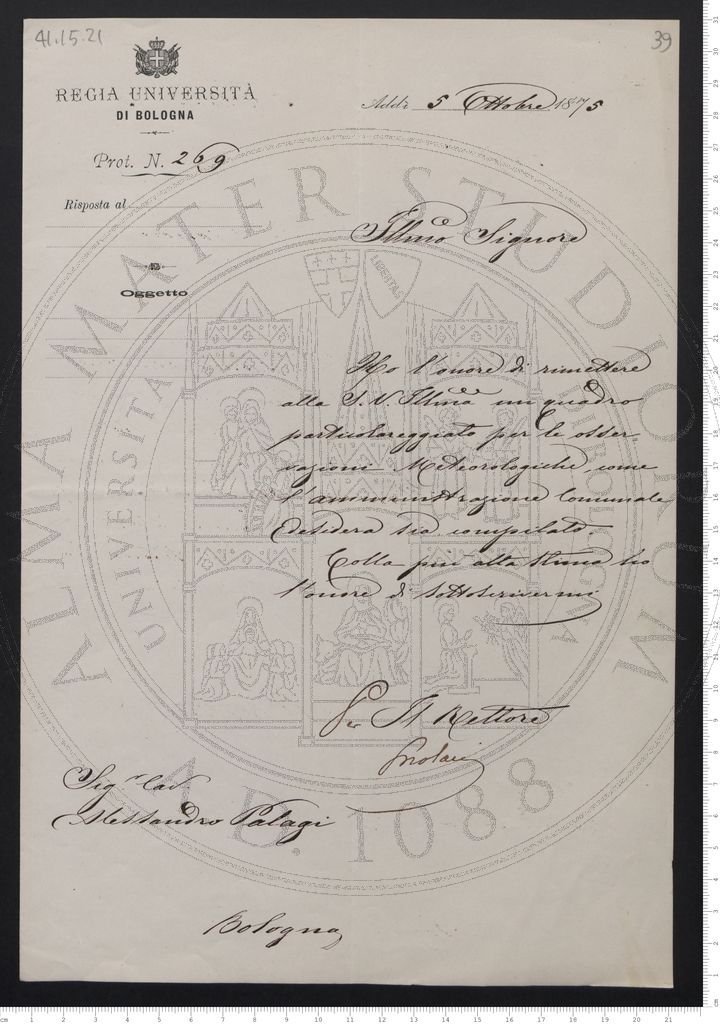 41.15.21
39
REGIA UNIVERSITÀ
DI BOLOGNA
Addì 5 Ottobre 1875
Prot. N. 269
Risposta al
Illmo Signore
Oggetto
Ho l'onore di rimettere
alla S. V. Illma un quadro
particolareggiato per le osser-
vazioni Meteorologiche, come
l'amministrazione Comunale
desidera sia compilato.
Colla più alta stima ho
l'onore di sottoscrivermi
Per Il Rettore
Sigr Cav
Alessandro Palagi
Bologna
ALMA MATER STUDIORUM
UNIVERSITÀ
LIBERTAS
A.D. 1088